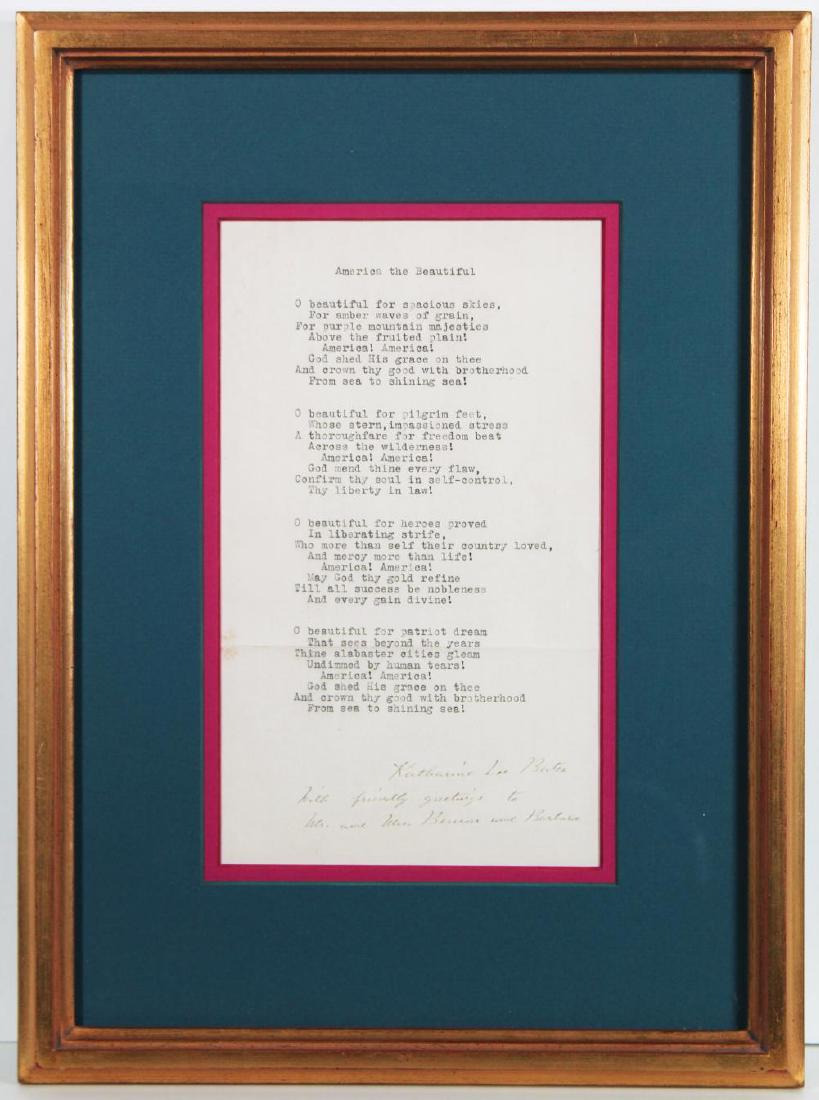 America the Beautiful
O beautiful for spacious skies,
For amber waves of grain,
For purple mountain majesties
Above the fruited plain!
America! America!
God shed His grace on thee
And crown thy good with brotherhood
From sea to shining sea!
O beautiful for pilgrim feet,
Whose stern,impassioned stress
A thoroughfare for freedom beat
Across the wilderness!
America! America!
God mend thine every flaw,
Confirm thy soul in self-control,
Thy liberty in law!
O beautiful for heroes proved
In liberating strife,
Who more than self their country loved,
And mercy more than life!
America! America!
May God thy gold refine
Till all success be nobleness
And every gain divine!
O beautiful for patriot dream
That sees beyond the years
Thine alabaster cities gleam
Undimmed by human tears!
America! America!
God shed His grace on thee
And crown thy good with brotherhood
From sea to shining sea!
Katharine Lee Bates
With friendly greetings to
Mr. and Mrs. and Barbara